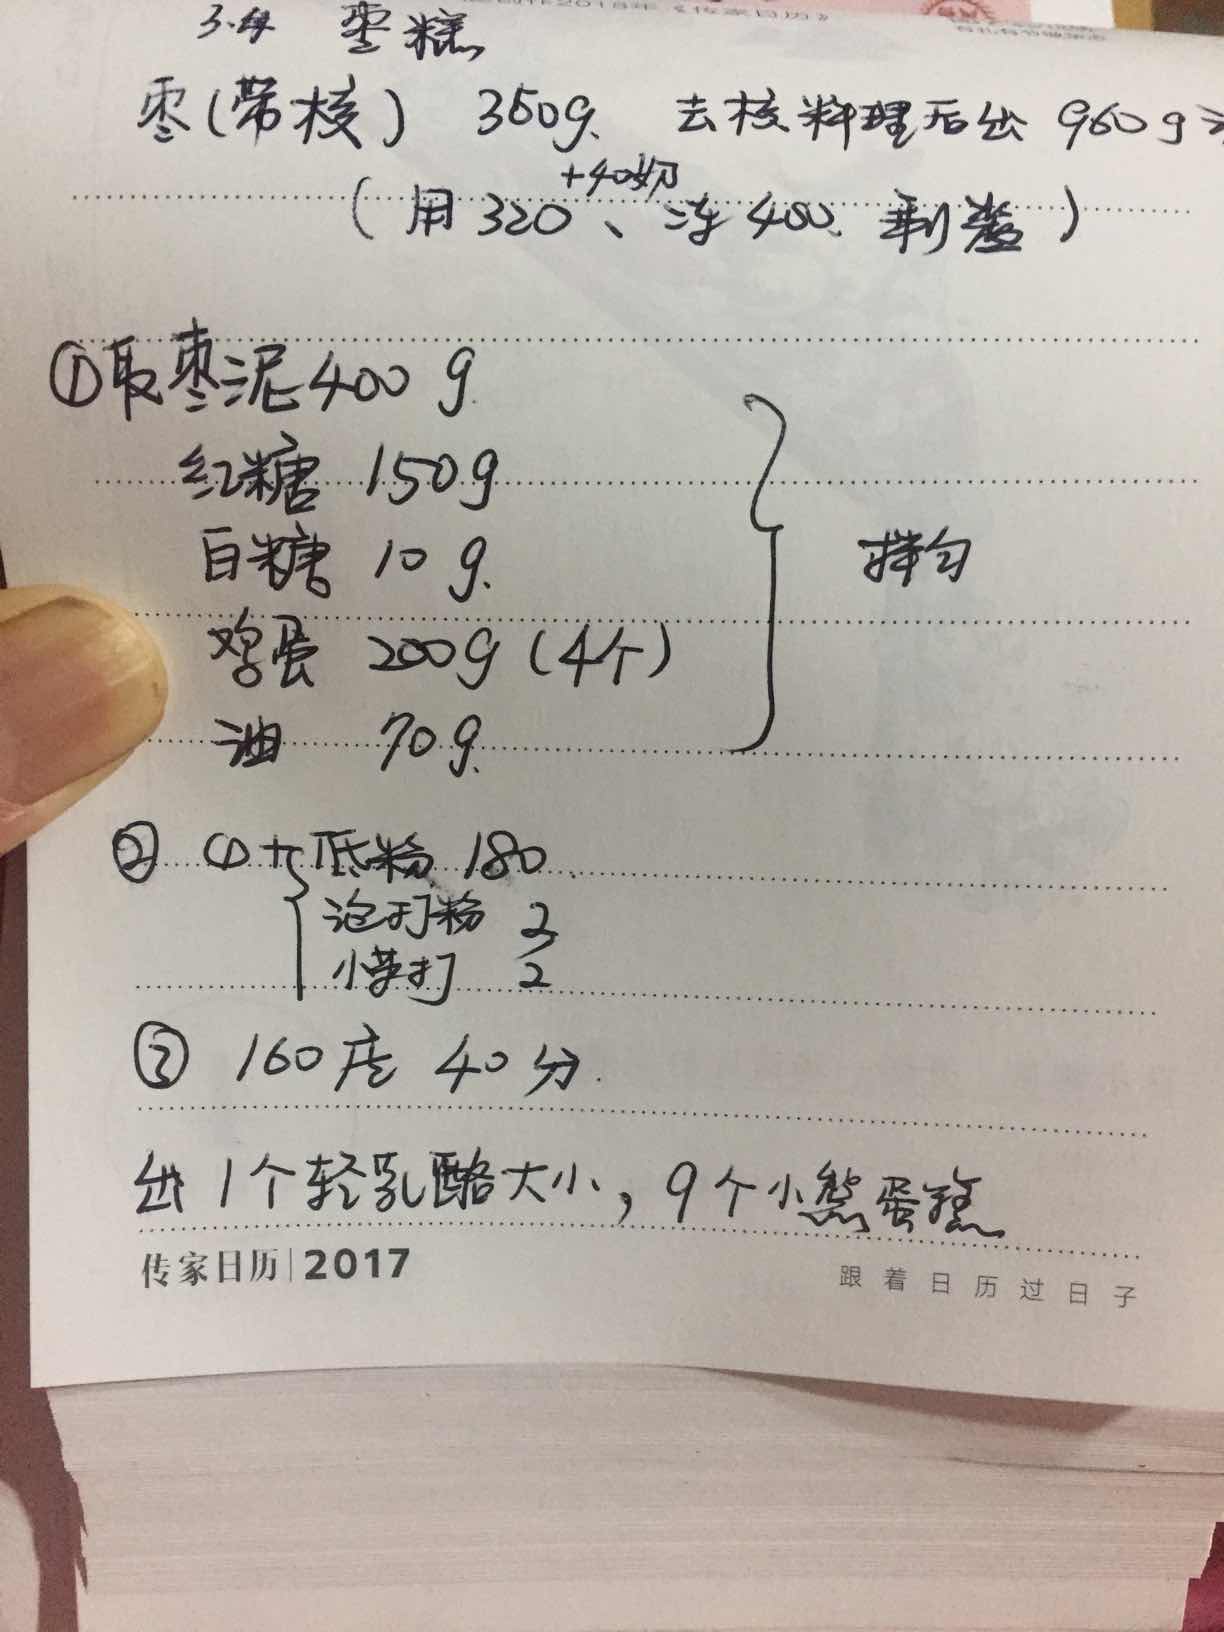 3.4 枣糕
枣(带核) 350g. 去核料理后出 960g
+40奶
(用320、冻400. 剩煮)
①取枣泥400g.
红糖 150g
白糖 10g.
鸡蛋 200g (4个)
油 70g.
拌匀
② ①+低粉 180.
泡打粉 2
小苏打 2
③ 160度 40分.
出1个轻乳酪大小, 9个小熊蛋糕
传家日历|2017
跟着日历过日子